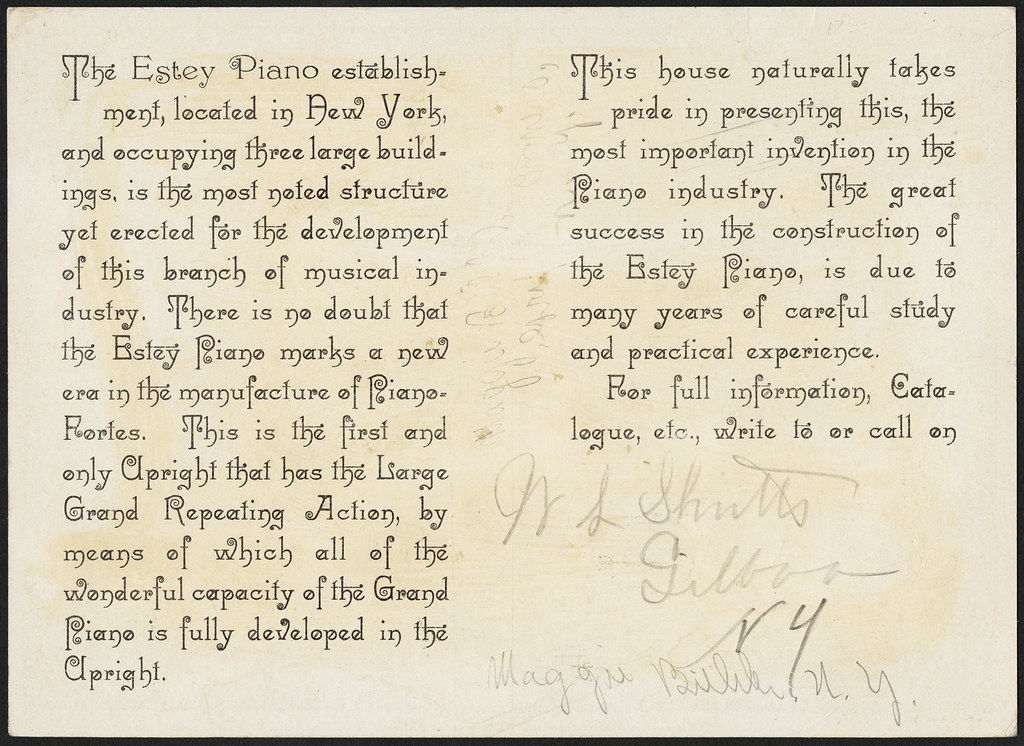 The Estey Piano establish-
ment, located in New York,
and occupying three large build-
ings, is the most noted structure
yet erected for the development
of this branch of musical in-
dustry. There is no doubt that
the Estey Piano marks a new
era in the manufacture of Piano-
Fortes. This is the first and
only Upright that has the Large
Grand Repeating Action, by
means of which all of the
wonderful capacity of the Grand
Piano is fully developed in the
Upright.
This house naturally takes
pride in presenting this, the
most important invention in the
Piano industry. The great
success in the construction of
the Estey Piano, is due to
many years of careful study
and practical experience.
For full information, Cata-
logue, etc., write to or call on
W S Shutts
Gilboa
N Y
Maggie N. Y.